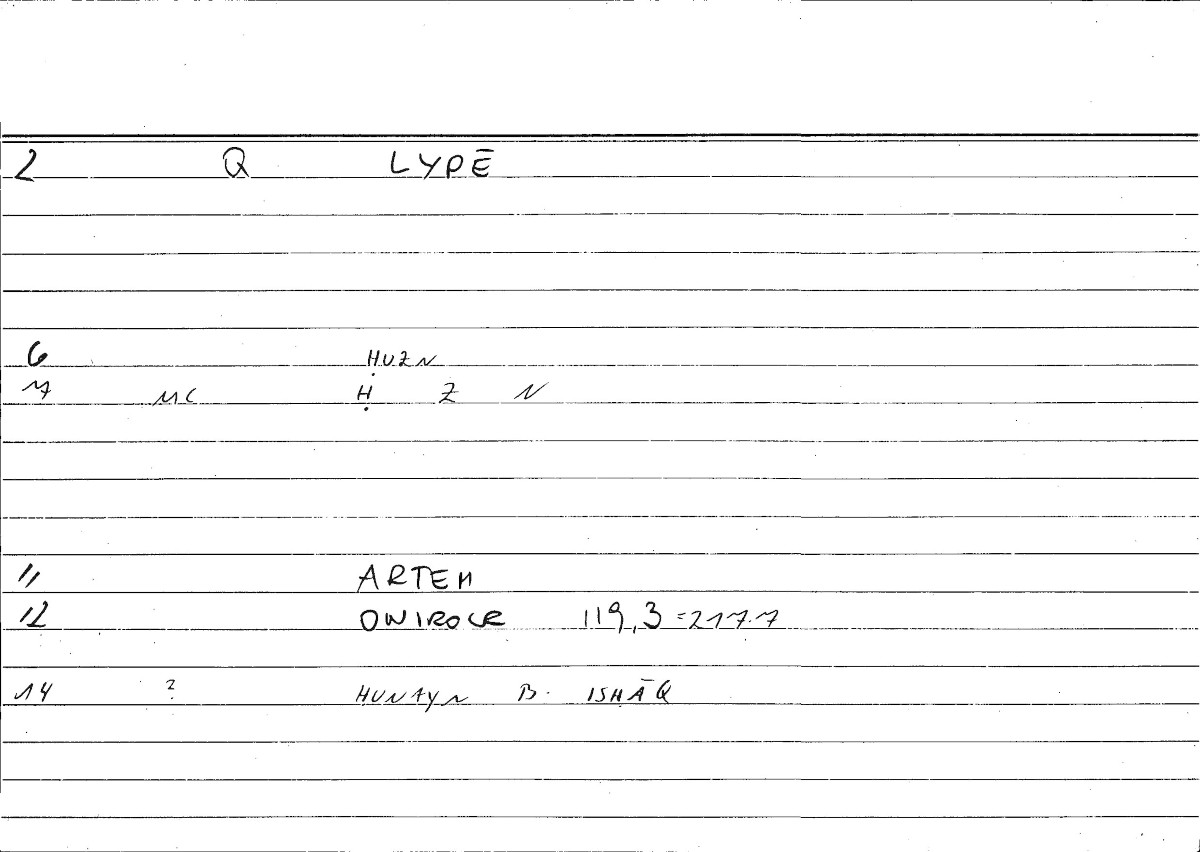 2 Q LYPĒ
6 ḤUZN
7 MC Ḥ Z N
11 ARTEM
12 ONIROCR 119,3 = 217.7
14 ? HUNAYN B. ISḤĀQ